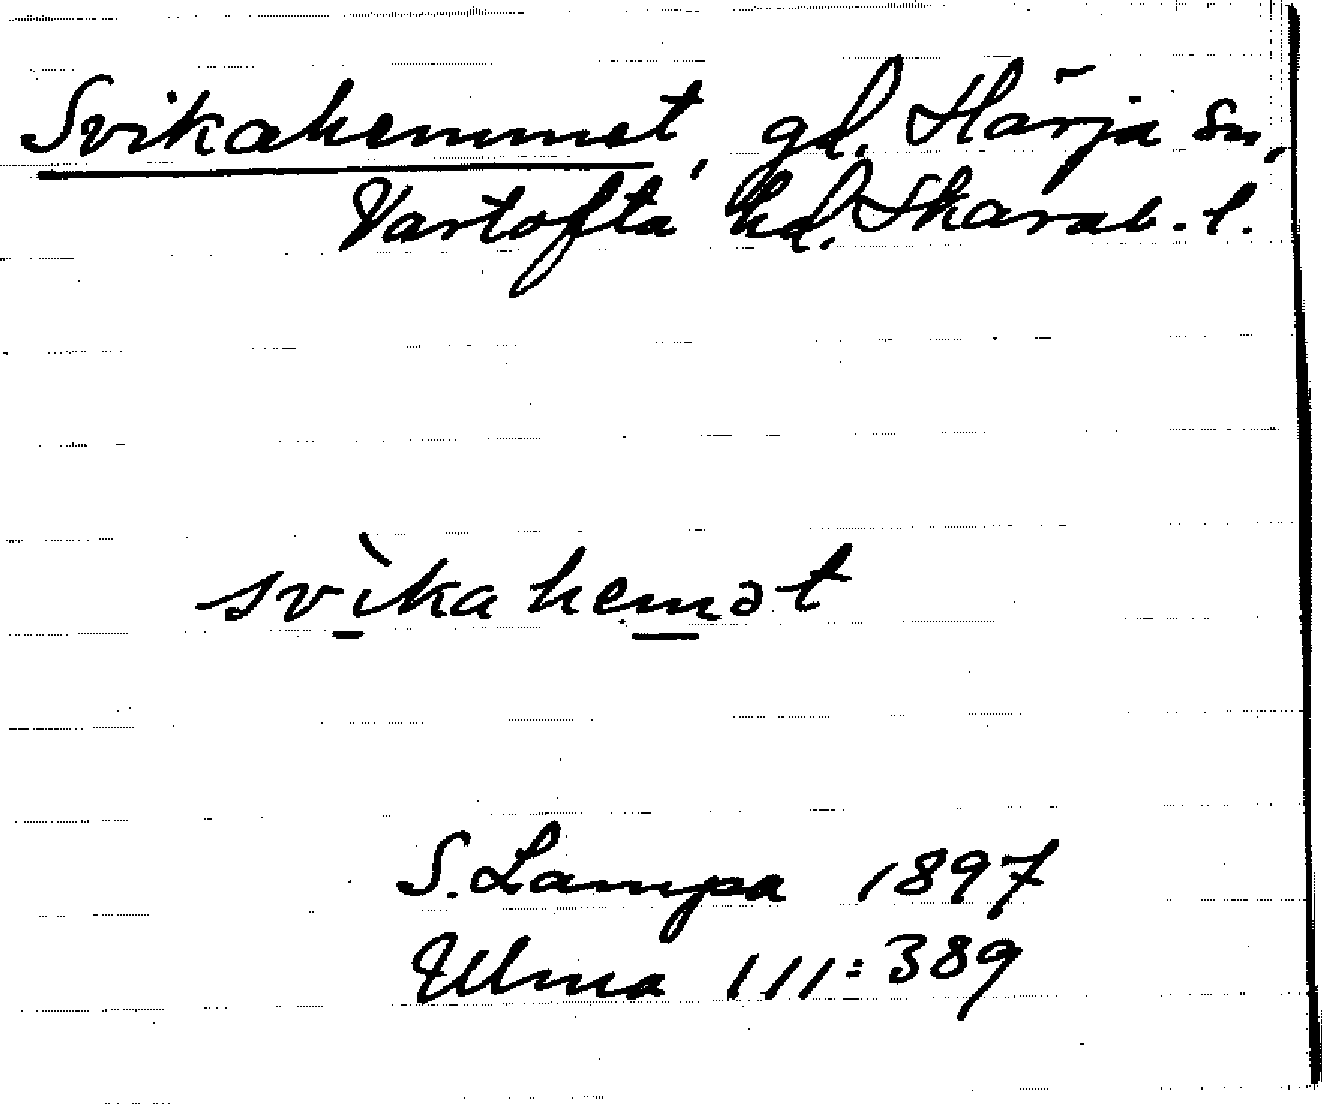 Svikahemmet, gd. Härja sn,
Vartofta hd. Skarab. l.
svìkahemət
S. Lampa 1897
Ulma 111:389